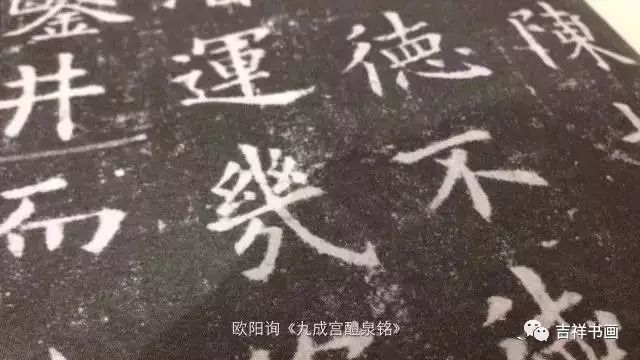 陳
德不
運幾
鑿井而
欧阳询《九成宫醴泉铭》
吉祥书画